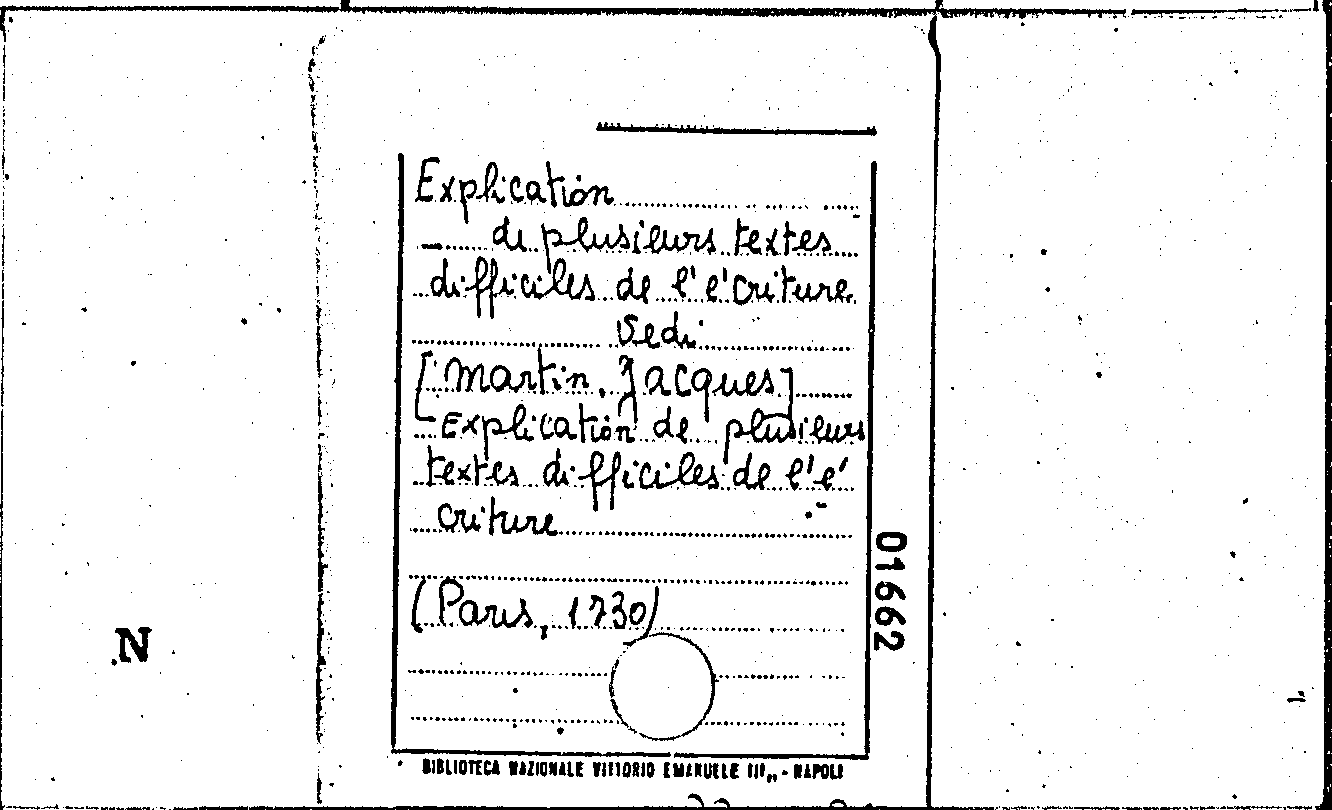 Explication
— de plusieurs textes
difficiles de l'écriture.
Vedi
[Martin, Jacques]
— Explication de plusieurs
textes difficiles de l'é
criture
(Paris, 1730)
01662
N
BIBLIOTECA NAZIONALE VITTORIO EMANUELE III - NAPOLI